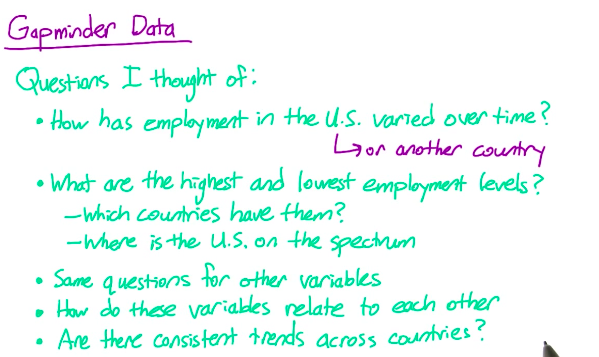 Gapminder Data
Questions I thought of:
• How has employment in the U.S. varied over time?
↳ or another country
• What are the highest and lowest employment levels?
– Which countries have them?
– Where is the U.S. on the spectrum
• Same questions for other variables
• How do these variables relate to each other
• Are there consistent trends across countries?